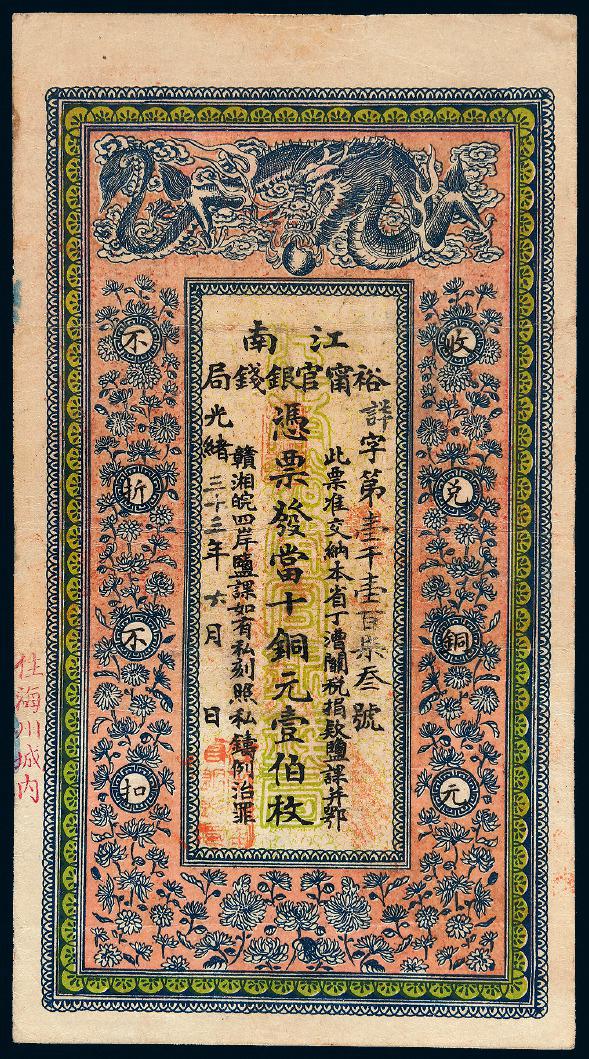 江南
裕甯官銀錢局
收兌銅元
詳字第壹千壹百柒叁號
此票准交納本省丁漕關稅捐款鹽課并鄂
憑票發當十銅元壹伯枚
贛湘皖四岸鹽課如有私刻照私鑄例治罪
光緒三十二年六月 日
不折不扣
住海州城内